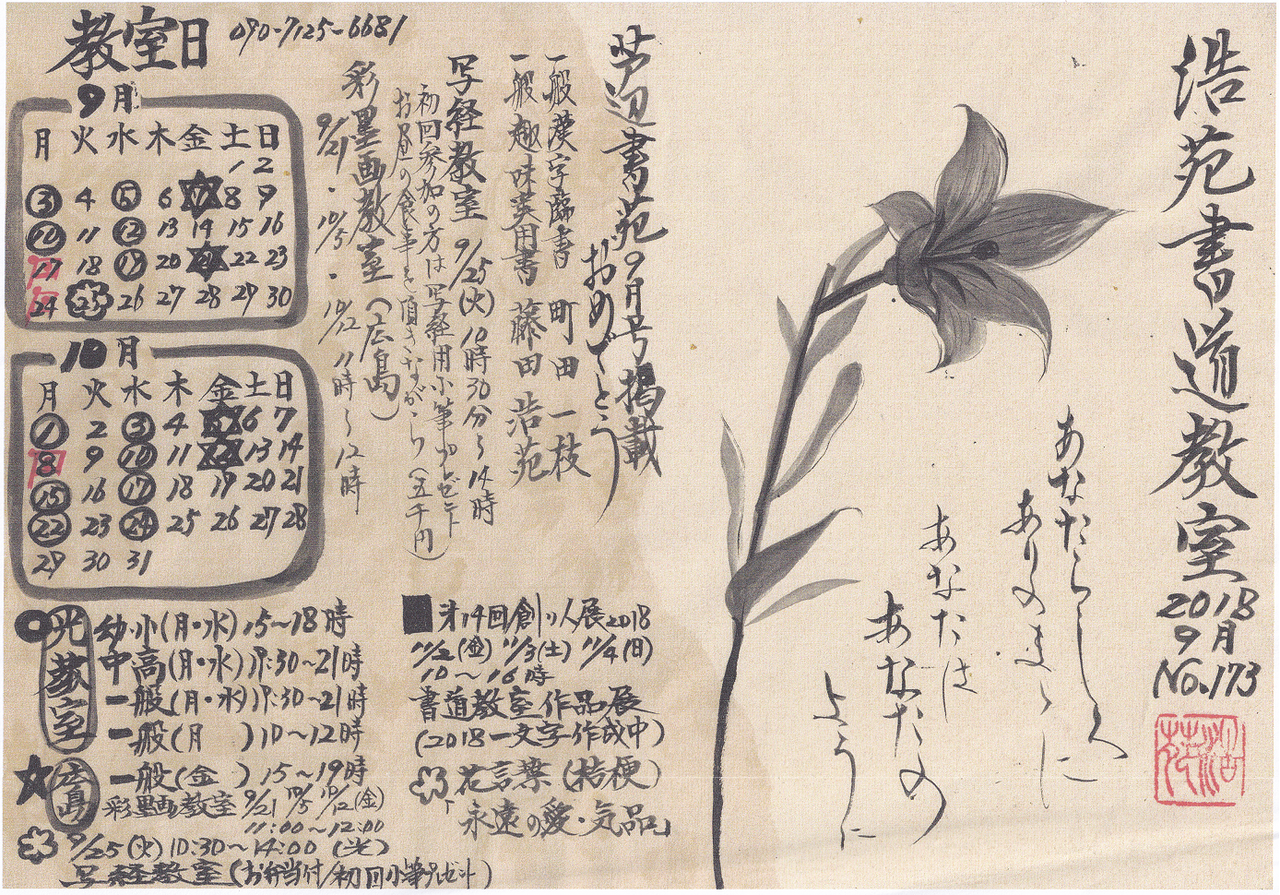 浩苑書道教室
2018
9月
No.173
あなたらしく
ありのままに
あなたは
あなたの
ように
書苑9月号掲載
おめでとう
一般漢字臨書 町田一枝
一般趣味実用書 藤田浩苑
写経教室 9/25(火)10時30分〜14時
初回参加の方は写経用小筆プレゼント
お昼の食事を頂きながら(五千円)
彩墨画教室(広島)
9/21・10/5・10/12 11時〜12時
教室日 090-7125-6681
9月
月 火 水 木 金 土 日
1 2
3 4 5 6 7 8 9
10 11 12 13 14 15 16
17 18 19 20 21 22 23
24 25 26 27 28 29 30
10月
月 火 水 木 金 土 日
1 2 3 4 5 6 7
8 9 10 11 12 13 14
15 16 17 18 19 20 21
22 23 24 25 26 27 28
29 30 31
光教室
幼・小(月・水)15〜18時
中高(月・水)17:30〜21時
一般(月・水)17:30〜21時
一般(月 )10〜12時
広島
一般(金 )15〜19時
彩墨画教室 9/21 10/5 10/12(金)
11:00〜12:00
9/25(火)10:30〜14:00(光)
写経教室(お弁当付/初回小筆プレゼント)
■第14回創り人展2018
11/2(金)11/3(土)11/4(日)
10〜16時
書道教室作品展
(2018一文字作成中)
花言葉(桔梗)
永遠の愛・気品